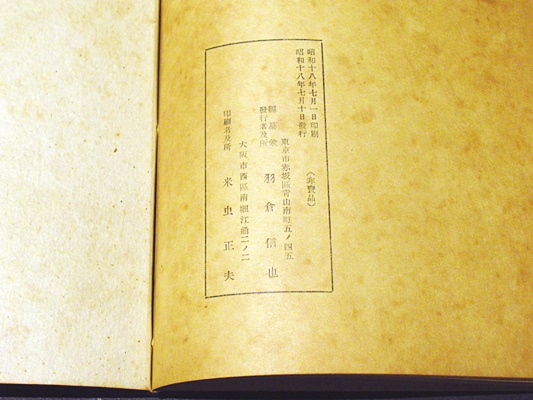 昭和十八年七月一日印刷
昭和十八年七月十日發行
(非賣品)
東京市赤坂區青山南町五ノ四五
編纂兼
發行者及所
羽倉信也
大阪市西區南堀江通二ノ二
印刷者及所
米虫正夫